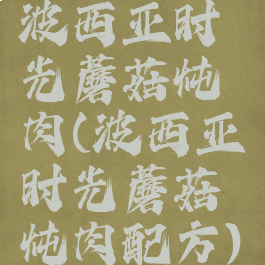 波西亚时
光蘑菇炖
肉(波西亚
时光蘑菇
炖肉配方)